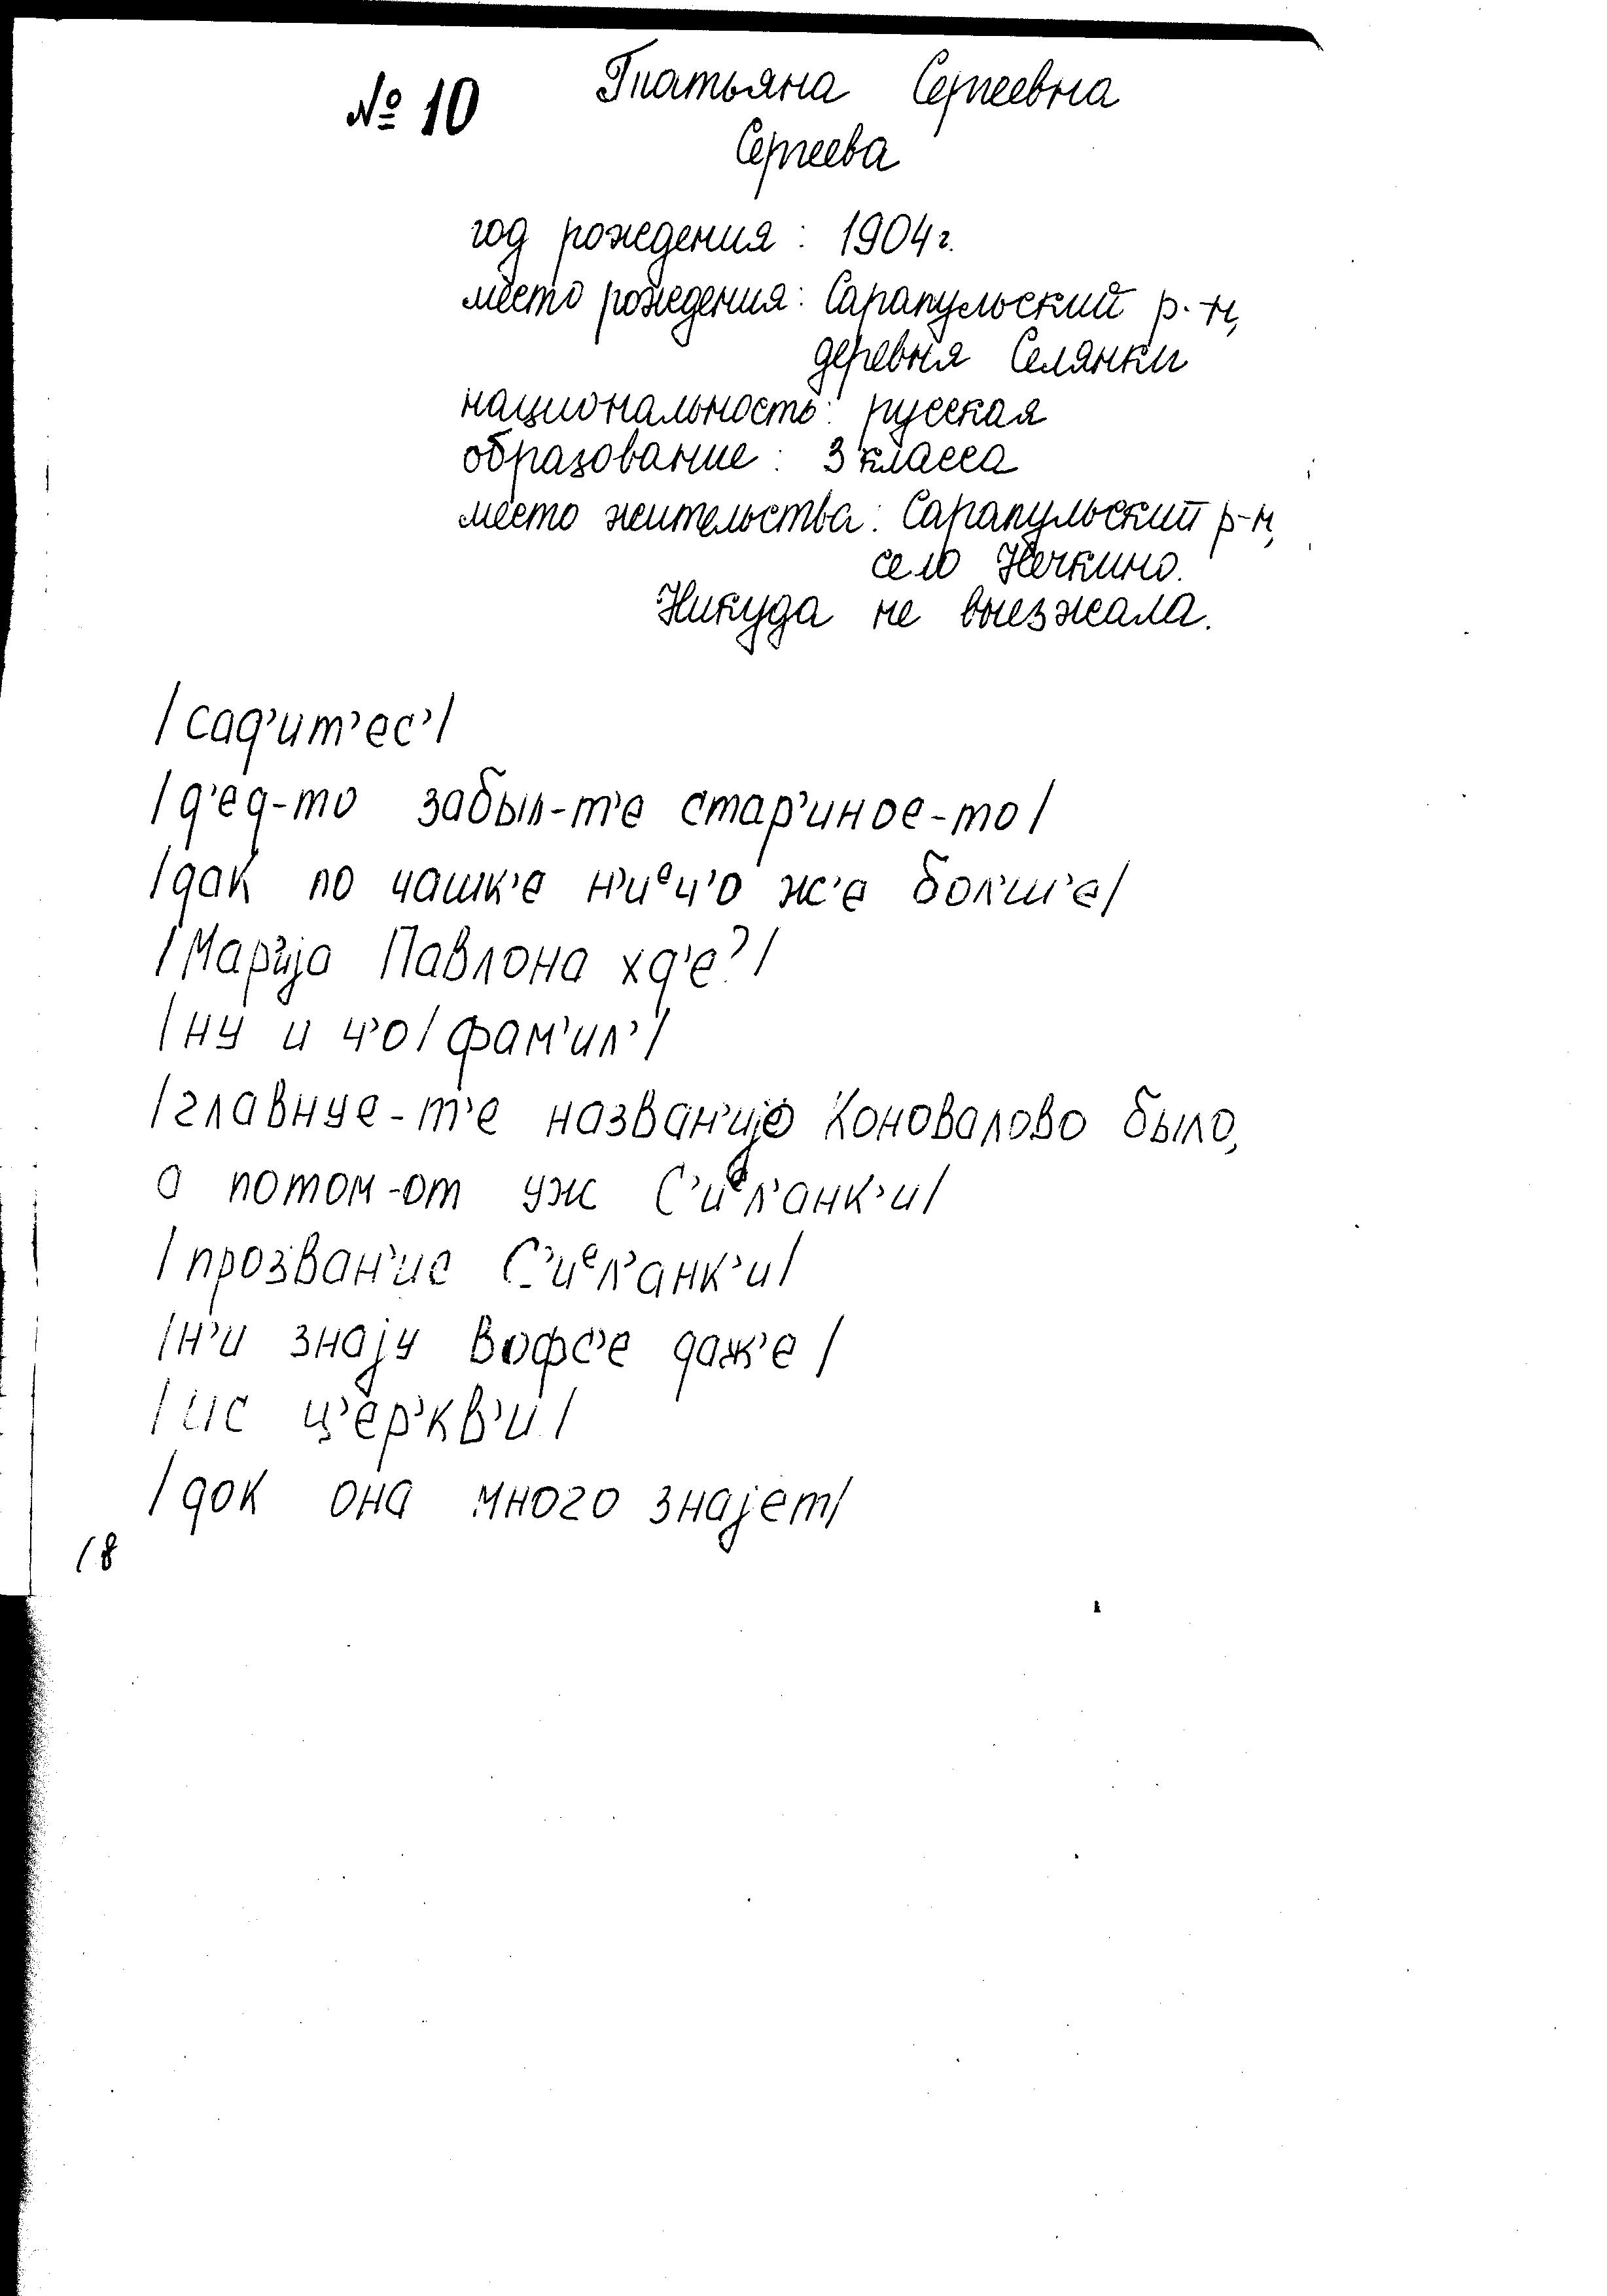 № 10 Татьяна Сергеевна
Сергеева
год рождения: 1904 г.
место рождения: Сарапульский р-н,
деревня Селянки
национальность: русская
образование: 3 класса
место жительства: Сарапульский р-н,
село Нечкино.
Никуда не выезжала.
/сад'ит'ес'/
/д'ед-то забыл-т'е стар'иное-то/
/дак по чашк'е н'иᵉч'о ж'е бол'ш'е/
/Мар'ија Павлона хд'е?/
/ну и ч'о/фам'ил'/
/главнуе-т'е назван'ијо Коновалово было,
а потом-от уж С'иᵉл'анк'и/
/прозван'ие С'иᵉл'анк'и/
/н'и знају вофс'е даж'е/
/ис ц'ер'кв'и/
/док она много знајет/
18